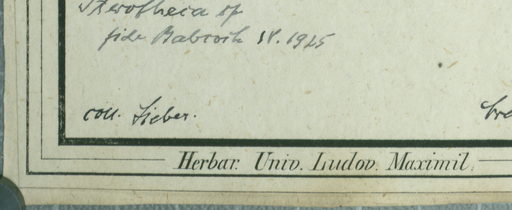 fide Babcock IV. 1925
coll. Sieber.
Herbar. Univ. Ludov. Maximil.